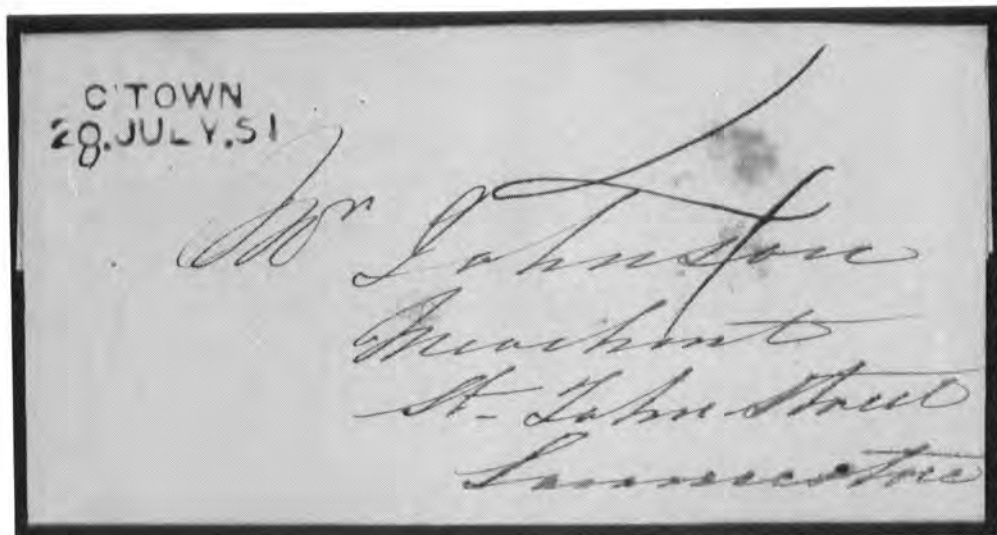 C'TOWN
28.JULY.51
Mr Johnstone
Merchant
St. John Street
Launceston
4